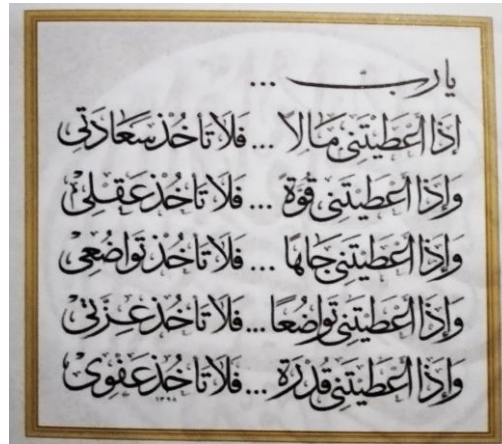 يا رب ...
إذَا أعَطَيْتَنِي مَالاً ... فَلاَ تَأخُذْ سَعَادَتِي
وَإذَا أعْطَيتَنِي قُوَّة ... فَلاَ تَأخُذْ عَقْلِي
وَإذَا أعْطَيتَنِي جَاهًا ... فَلاَ تَأخُذْ تَوَاضُعِي
وَإذَا أعْطَيتَنِي تَوَاضُعًا ... فَلاَ تَأخُذْ عِزَّتِي
وَإذَا أعْطَيتَنِي قُدْرَة ... فَلاَ تَأخُذْ عَفْوِي
١٣٩٨